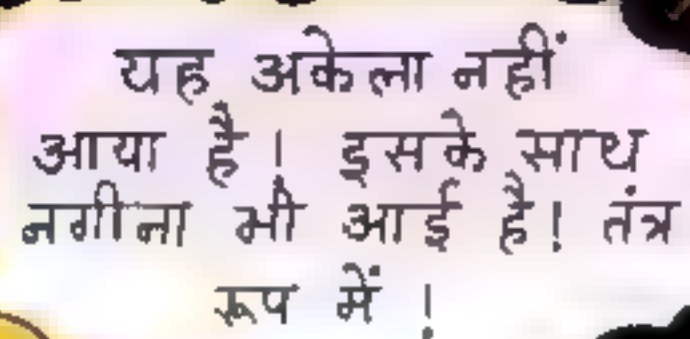 यह अकेला नहीं
आया है! इसके साथ
नगीना भी आई है! तंत्र
रूप में !